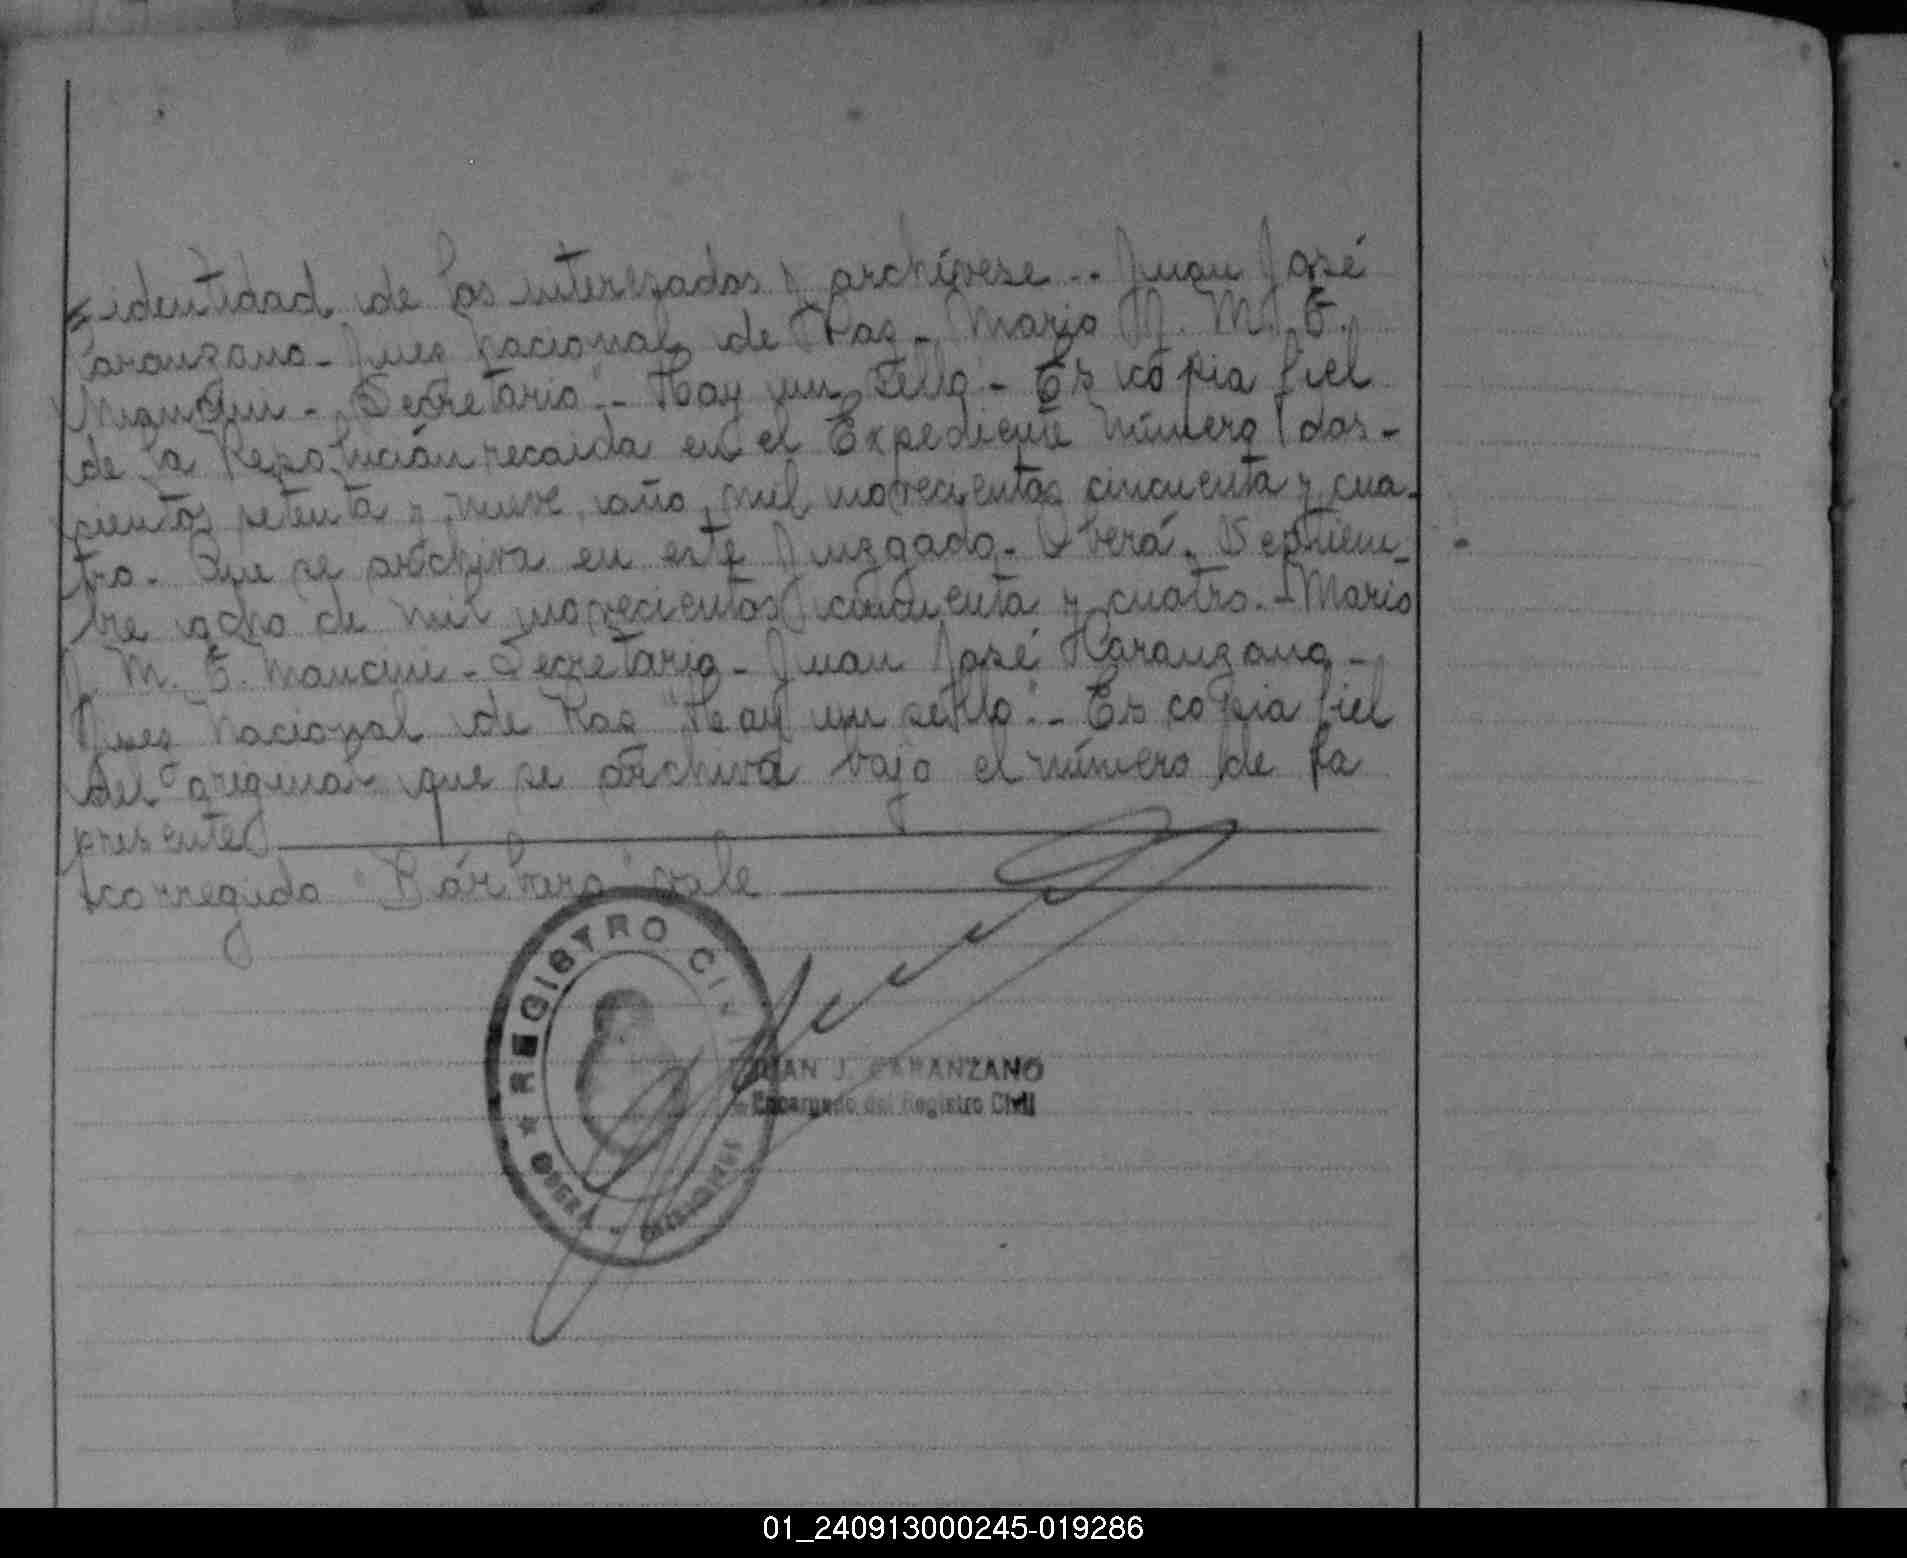 identidad de los interezados y archívese.. Juan José
Caranzano - Juez Nacional de Paz - Mario J. M. E.
Mancini - Secretario".- Hay un sello - Es copia fiel
de la Resolución recaida en el Expediente número dos-
cientos setenta y nueve, año, mil novecientos cincuenta y cua-
tro. Que se archiva en este Juzgado. Oberá, Septiem-
bre ocho de mil novecientos cincuenta y cuatro. - Mario
J. M. E. Mancini - Secretario - Juan José Karanzano -
Juez Nacional de Paz "Hay un sello".- Es copia fiel
del original que se archiva bajo el número de la
presente
corregido "Bárbara" vale
REGISTRO CIVIL
★ OBERÁ - MISIONES
JUAN J. CARANZANO
Encargado del Registro Civil
01_240913000245-019286